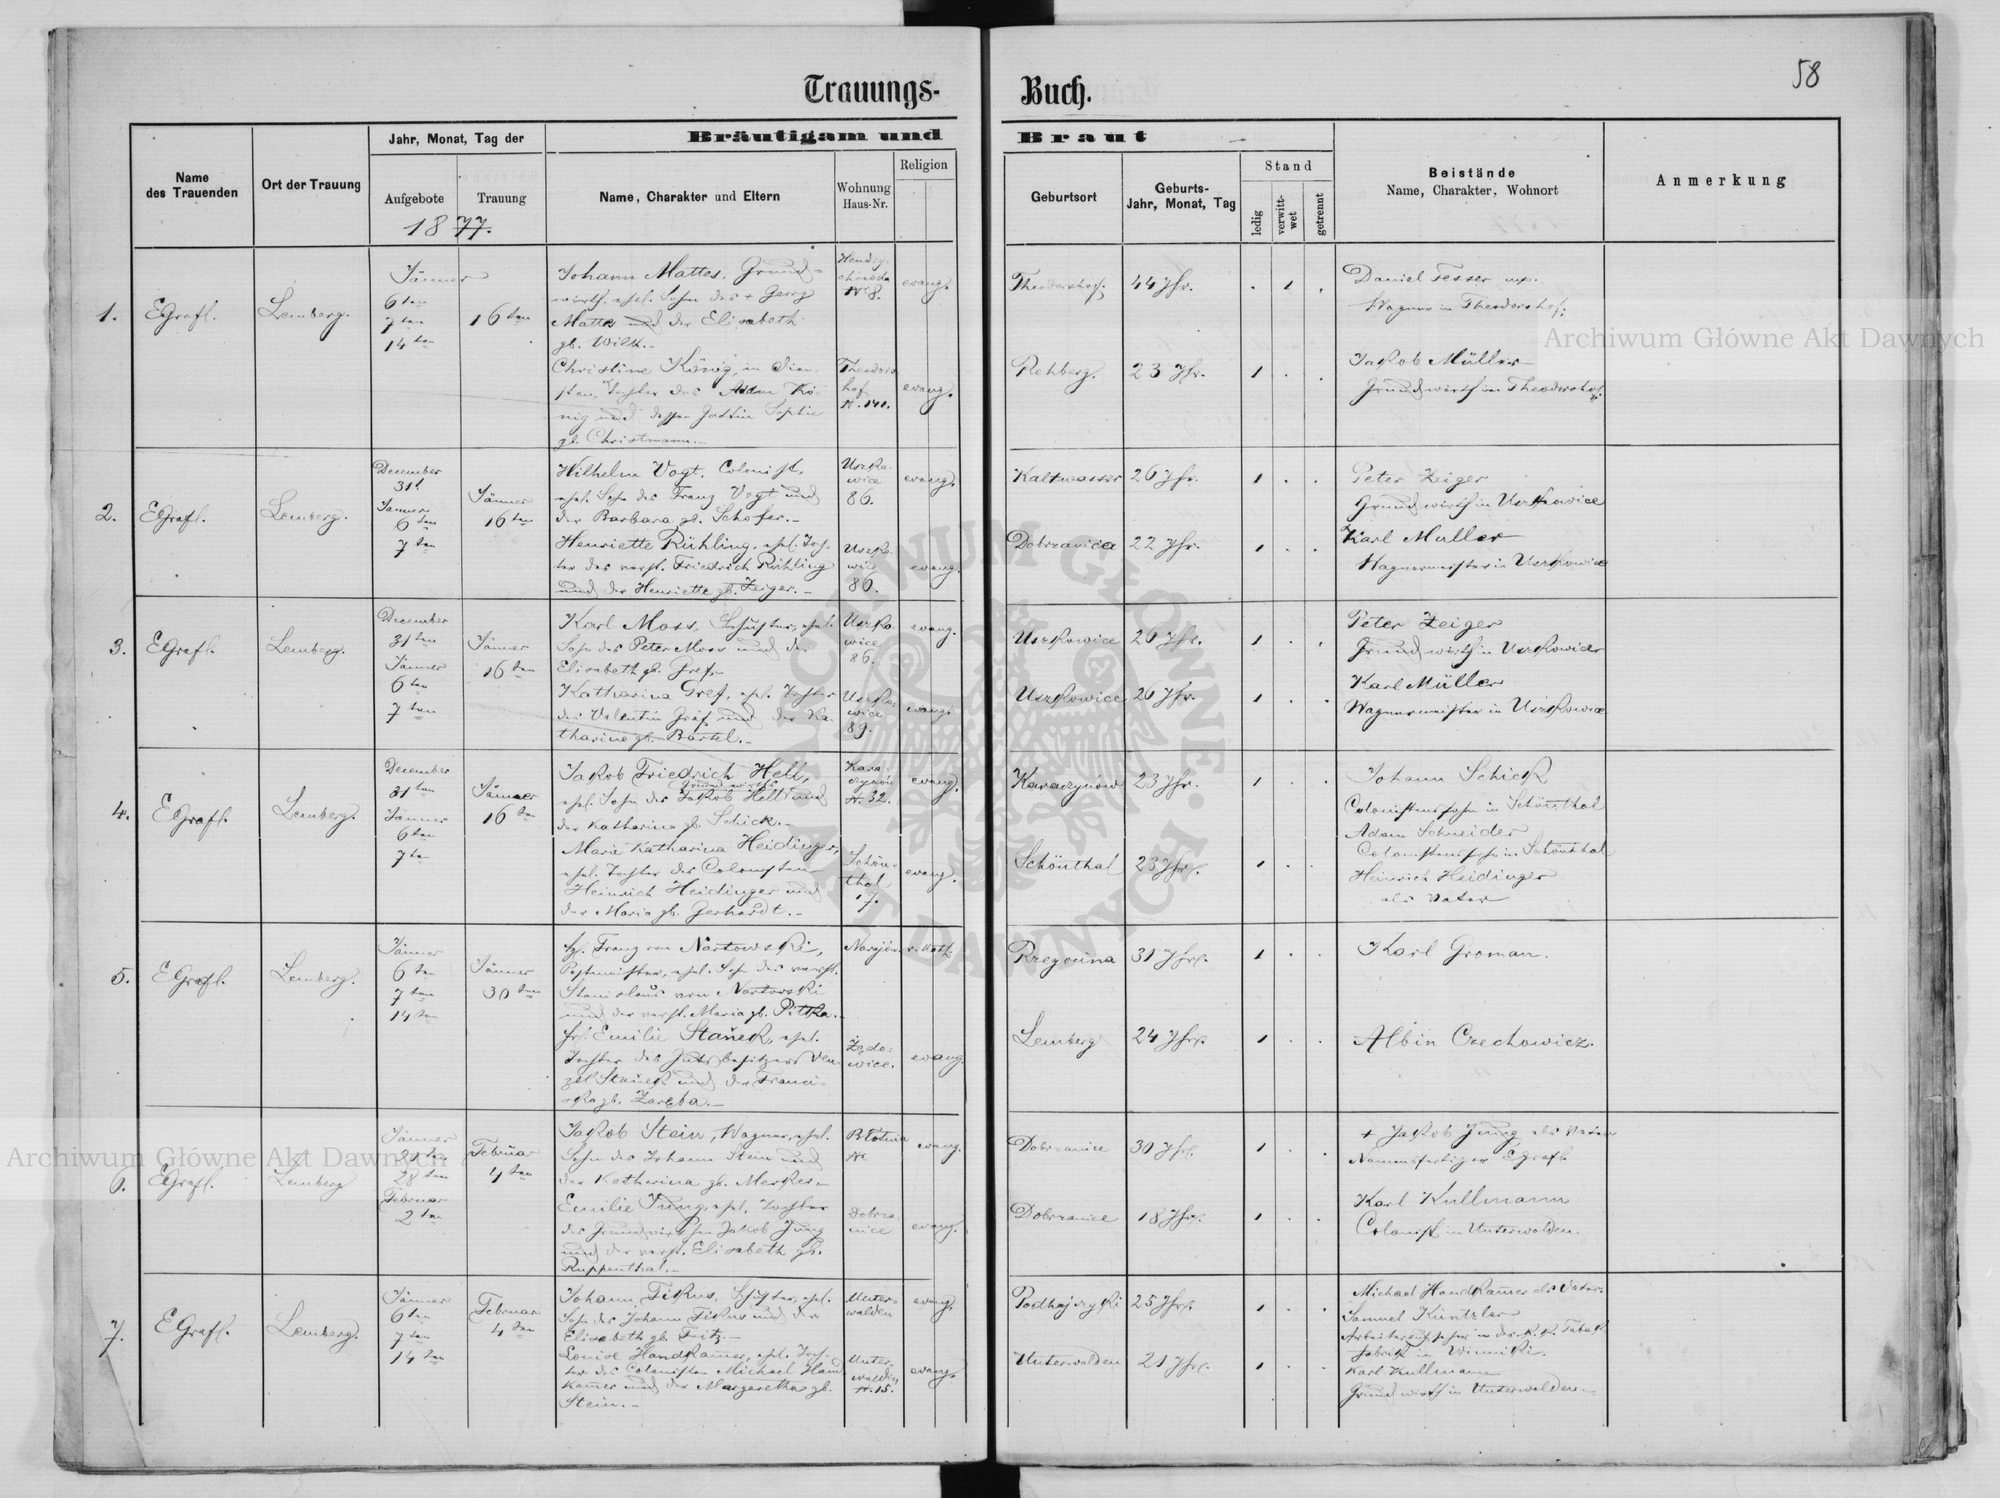 58
Trauungs- Buch.
Bräutigam und Braut
Name des Trauenden
Ort der Trauung
Jahr, Monat, Tag der
Aufgebote
Trauung
Name, Charakter und Eltern
Wohnung Haus-Nr.
Religion
Geburtsort
Geburts- Jahr, Monat, Tag
Stand
ledig
verwittwet
getrennt
Beistände
Name, Charakter, Wohnort
Anmerkung
1877.
1.
EGrafl.
Lemberg.
Jänner
6ten
7ten
14ten
16ten
Johann Mattes, Grund-
wirth, ehel. Sohn des + Georg
Mattes und der Elisabeth
gb. Wilk.-
No 8.
evang.
Theodorshof,
44 Jhr.
Daniel Tesser
Wagner in Theodorshof;
Christine König, in Dien-
sten, Tochter des Adam Kö-
nig und dessen Gattin Sophie
gb. Christmann.-
Theodors
hof
N. 141.
evang.
Rehberg.
23 Jhr.
Jakob Müller
Grundwirth in Theodorshof.
2.
EGrafl.
Lemberg.
December
31t
Jänner
6ten
7ten
Jänner
16ten
Wilhelm Vogt, Colonist,
ehel. Sohn des Franz Vogt und
der Barbara gb. Schofer.-
Uszko-
wice
86.
evang.
Kaltwasser
26 Jhr.
Peter Zeiger
Grundwirth in Uszkowice
Henriette Rühling, ehel. Toch-
ter des verst. Friedrich Rühling
und der Henriette gb. Zeiger.-
Uszko-
wice
86.
evang.
Dobrzanica
22 Jhr.
Karl Muller
Wagnermeister in Uszkowice
3.
EGrafl.
Lemberg.
December
31ten
Jänner
6ten
7ten
Jänner
16ten
Karl Moss, Schuster, ehel.
Sohn des Peter Moss und der
Elisabeth gb. Gref.-
Uszko-
wice
86.
evang.
Uszkowice
26 Jhr.
Peter Zeiger
Grundwirth in Uszkowice
Katharina Gref, ehel. Tochter
des Valentin Gräf und der Ka-
tharine gb. Bartel.-
Uszko-
wice
89.
evang.
Uszkowice
26 Jhr.
Karl Müller
Wagnermeister in Uszkowice
4.
EGrafl.
Lemberg.
December
31ten
Jänner
6ten
7ten
Jänner
16ten
Jakob Friedrich Hell,
Grundwirth
ehel. Sohn des Jakob Hell und
der Katharine gb. Schick.-
Kara-
czynów
N. 32.
evang.
Karaczynów
23 Jhr.
Johann Schick
Colonistensohn in Schönthal
Adam Schneider
Colonistensohn in Schönthal
Marie Katharina Heidinger,
ehel. Tochter des Colonisten
Heinrich Heidinger und
der Maria gb. Gerhardt.-
Schön-
thal
17.
evang.
Schönthal
23 Jhr.
Heinrich Heidinger
als Vater
5.
EGrafl.
Lemberg.
Jänner
6ten
7ten
14ten
Jänner
30ten
Franz von Nartowski,
Postmeister, ehel. Sohn des verst.
Stanislaus von Nartowski
und der verst. Maria gb. Pittka.-
Narajów
r. kath.
Rzegocina
31 Jhr.
Karl Groman.
Frl. Emilie Stañek, ehel.
Tochter des Gutsbesitzers Wen-
zel Stañek und der Franci-
ska gb. Zaręba.-
Zędo-
wice.
evang.
Lemberg
24 Jhr.
Albin Czechowicz.
6.
EGrafl.
Lemberg
Jänner
28ten
Februar
2ten
Februar
4ten
Jakob Stein, Wagner, ehel.
Sohn des Johann Stein und
der Katharina gb. Merker.-
Błotnia
evang.
Dobrzanice
30 Jhr.
+ Jakob Jung als Vater
Namensfertiger EGrafl
Emilie Jung, ehel. Tochter
des Grundwirthen Jakob Jung
und der verst. Elisabeth gb.
Ruppenthal.-
Dobrza-
nice
evang.
Dobrzanice
18 Jhr.
Karl Kullmann
Colonist in Unterwalden.
7.
EGrafl.
Lemberg.
Jänner
6ten
7ten
14ten
Februar
4ten
Johann Fikus, Schuster, ehel.
Sohn des Johann Fikus und der
Elisabeth gb. Fritz.-
Unter-
walden
evang.
Podhajczyki
25 Jhr.
Michael Handkamer als Vater.
Samuel Küntzler
Arbeiteraufseher in der k.k. Tabak
fabrik in Winniki.
Louise Handkamer, ehel. Toch-
ter des Colonisten Michael Hand-
kamer und der Margaretha gb.
Stein.-
Unter-
walden
N. 15.
evang.
Unterwalden
21 Jhr.
Karl Kullmann
Grundwirth in Unterwalden.
Archiwum Główne Akt Dawnych
Archiwum Główne Akt Dawnych
ARCHIWUM GŁÓWNE AKT DAWNYCH